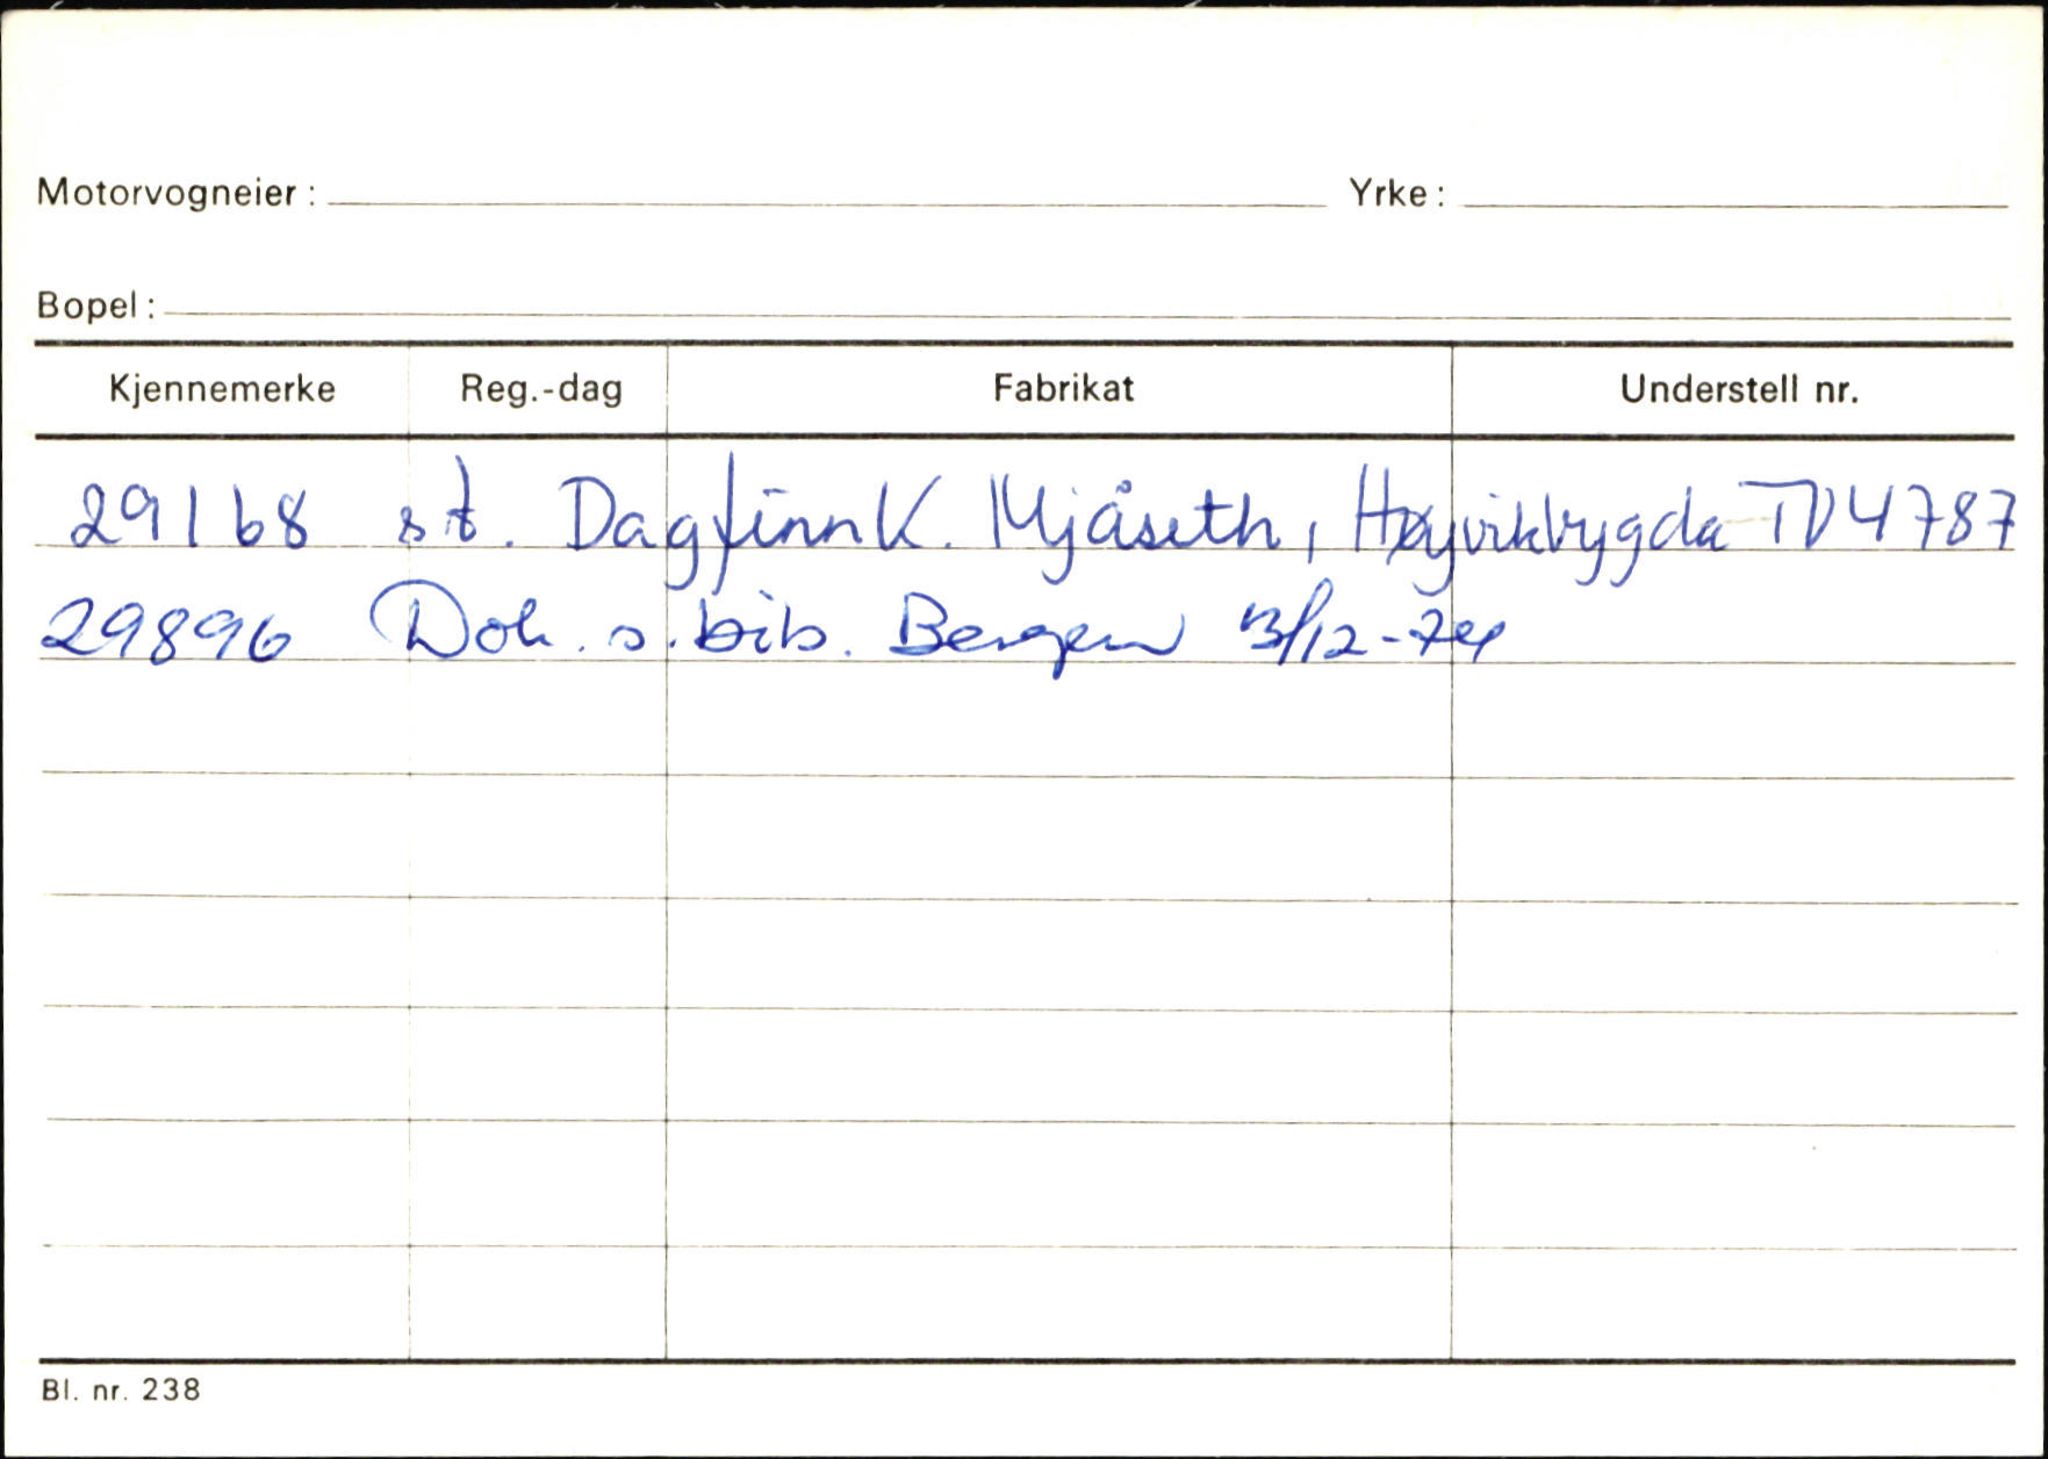 Motorvogneier: Yrke:
Bopel:
Kjennemerke Reg.-dag Fabrikat Understell nr.
29168 st. Dagfinn K. Mjåseth, Høyvikbygda TV4787
29896 Dok. s. bils. Bergen 13/12-74
Bl. nr. 238